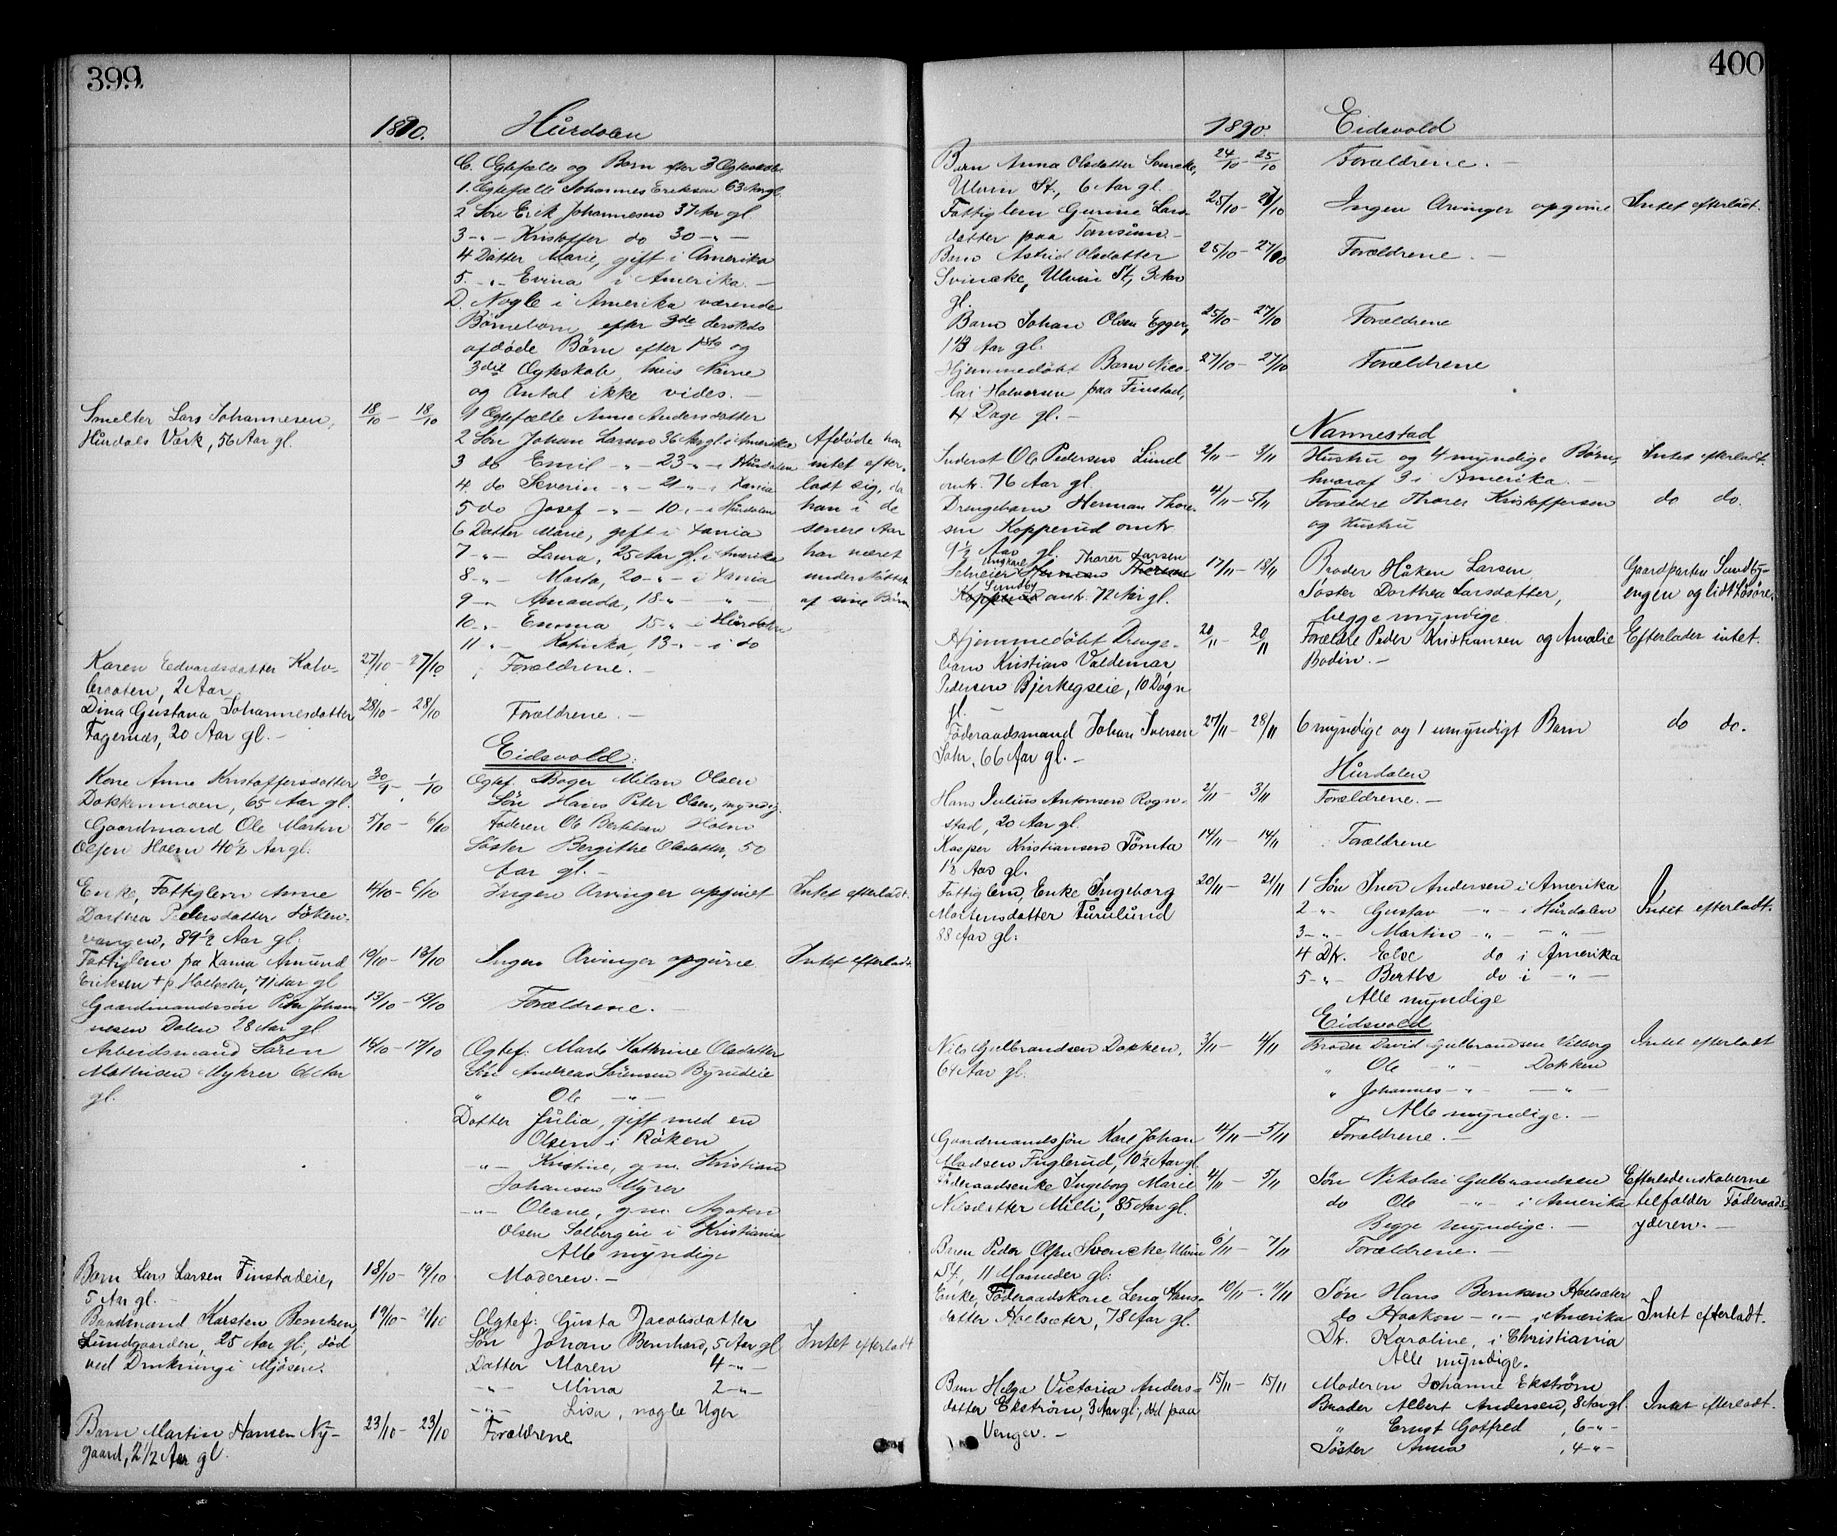 399.
1890. Hurdalen
C. Ægtefælle og Børn efter 3 Ægteskab
1. Ægtefælle Johannes Eriksen 63 Aar gl
2 Søn Erik Johannesen 37 Aar gl
3 -"- Kristoffer do 30 -"-
4 Datter Marie, gift i Amerika
5. -"- Evina i Amerika. -
D. Nogle i Amerika værende
Børnebørn efter 3de dersteds
afdøde Børn efter 1ste og
3die Ægteskab, hvis Navne
og Antal ikke vides. -
Smelter Lars Johannesen, 18/10 - 18/10 1 Ægtefælle Anne Andersdatter
Hurdals Værk, 56 Aar gl. 2 Søn Johan Larsen 36 Aar gl i Amerika Afdøde har
3 do Emil -"- 23 -"- i Hurdalen intet efter-
4. do Severin -"- 21 -"- i Xania ladt sig, da
5 do Josef -"- 10 -"- i Hurdalen han i de
6 Datter Marie, gift i Xania senere Aar
7 -"- Laura, 25 Aar gl. i Amerika har været
8 -"- Marta, 20 -"- i Xania understøttet
9 -"- Amanda, 18 -"- -"- af sine Børn
10 -"- Emma 15 -"- i Hurdalen
11 -"- 13 -"- i do
Karen Edvardsdatter Kalv- 27/10 - 27/10 Forældrene. -
braaten, 2 Aar
Dina Gustava Johannesdatter 28/10 - 28/10 Forældrene. -
Fagernæs, 20 Aar gl. -
Eidsvold.
Kone Anne Kristoffersdatter 30/9 - 1/10 Ægtef. Bager Milan Olsen
Dokkenmoen, 65 Aar gl. Søn Hans Peter Olsen, myndig.
Gaardmand Ole Martin 5/10 - 6/10 Faderen Ole Bertelsen Holm
Olsen Holm 40½ Aar gl: Søster Bergitthe Olsdatter, 50
Aar gl. -
Enke, Fattiglem Anne 4/10 - 6/10 Ingen Arvinger opgivet Intet efterladt.
Dorthea Pedersdatter Løken-
vangen, 89½ Aar gl:
Fattiglem fra Xania Amund 12/10 - 13/10 Ingen Arvinger opgivne Intet efterladt.
Eriksen 71 Aar gl
Gaardmandssøn Peter Johan- 13/10 - 13/10 Forældrene. -
nesen Dalen 28 Aar gl.
Arbeidsmand Søren 14/10 - 17/10 Ægtef: Marte Kathrine Olsdatter
Mathisen Myhrer 61 Aar Søn Andreas Sørensen
gl. " Ole -"-
Datter Julia, gift med en
Olsen i Røken
-"- Kristine, g.m. Kristian
Johansen Myrer
-"- Oleane, g.m. Agaton
Olsen Solbergeie i Kristiania
Alle myndige
Barn Lars Larsen Finstadeie, 18/10 - 19/10 Moderen. -
5 Aar gl. -
Baadmand Karsten Berntsen, 19/10 - 21/10 Ægtef: Gusta Jacobsdatter
Lundgaarden, 25 Aar gl, død Søn Johan Bernhard, 5 Aar gl Intet efterladt
ved Drukning i Mjøsen. Datter Maren 4 -"-
-"- Mina 2 -"-
-"- Lisa, nogle Uger
Barn Martin Hansen Ny- 23/10 - 23/10 Forældrene
gaard, 2½ Aar gl.
400
1890. Eidsvold
Barn Anna Olsdatter Svencke, 24/10 - 25/10 Forældrene. -
Ulvin St., 6 Aar gl.
Fattiglem Gurine Lars- 25/10 - 27/10 Ingen Arvinger opgivne Intet efterladt.
datter paa
Barn Astrid Olsdatter 25/10 - 27/10 Forældrene. -
Svencke, Ulvin St, 3 Aar
gl.
Barn Johan Olsen Egger, 25/10 - 27/10 Forældrene
Aar gl.
Hjemmedøbt Barn Nico- 27/10 - 27/10 Forældrene
lai Halvorsen, paa Finstad,
4 Dage gl. -
Nannestad
Inderst Ole Pedersen Lund 2/11 - 3/11 Hustru og 4 myndige Børn, Intet efterladt.
omtr. 76 Aar gl. hvoraf 3 i Amerika. -
Drengebarn Herman Thor- 4/11 - 5/11 Forældre Thorer Kristoffersen do do.
sen Kopperud omtr og Hustru
9½ Aar gl.
Ungkarl Thorer Larsen
Herman Thorsen 17/11 - 18/11 Broder Håken Larsen Gaardparten Sundby-
Sundby
Kopperud omtr. 72 Aar gl. Søster Dorthea Larsdatter, engen og lidt Løsøre.
begge myndige
Hjemmedøbt Drenge- 20/11 - 20/11 Forældre Peder Kristiansen og Amalie Efterlader intet.
barn Kristian Valdemar Bodin. -
Pedersen Bjerkegseie, 10 Døgn
gl.
Føderaadsmand Johan Iversen 27/11 - 28/11 6 myndige og 1 umyndigt Barn do do.
66 Aar gl. -
Hurdalen
Hans Julius Antonsen Rogn- 2/11 - 3/11 Forældrene. -
stad, 20 Aar gl.
Kasper Kristiansen Tømta 14/11 - 14/11 Forældrene
1½ Aar gl.
Fattiglem, Enke Ingeborg 20/11 - 21/11 1 Søn Iver Andersen i Amerika
Mortensdatter Furulund 2 -"- Gustav -"- i Hurdalen Intet efterladt.
88 Aar gl: 3 -"- Martin -"- -"-
4 Dtr. Else do i Amerika
5 -"- Berthe do i -"-
Alle myndige
Eidsvold
Nils Gulbrandsen Dokken, 3/11 - 4/11 Broder David Gulbrandsen Vilberg Intet efterladt
61 Aar gl. " Ole -"- Dokken
" Johannes -"- -"-
Alle myndige. -
Gaardmandssøn Karl Johan 4/11 - 5/11 Forældrene. -
Madsen Fuglerud, 10½ Aar gl.
Føderaadsenke Ingeborg Marie 4/11 - 5/11 Søn Nikolai Gulbrandsen Efterladenskaberne
Nilsdatter Milli, 85 Aar gl. do Ole -"- i Amerika tilfalder Føderaads-
Begge myndige. - yderen. -
Barn Peder Olsen Svencke Ulvin 6/11 - 7/11 Forældrene. -
St, 11 Maaneder gl:
Enke, Føderaadskone Lena Hans- 10/11 - 11/11 Søn Hans Berntsen Hoelsæter
datter Hoelsæter, 78 Aar gl. do Haakon -"- i Amerika Intet efterladt.
Dtr. Karoline, i Christiania
Alle myndige.
Barn Helga Victoria Anders- 15/11 - 15/11 Moderen Johanne Ekstrøm
datter Ekstrøm, 3 Aar gl, død paa Broder Albert Andersen, 8 Aar gl. Intet efterladt.
Venger. - " Ernst Gotfred , 6 -"-
Søster Anna , 4 -"-